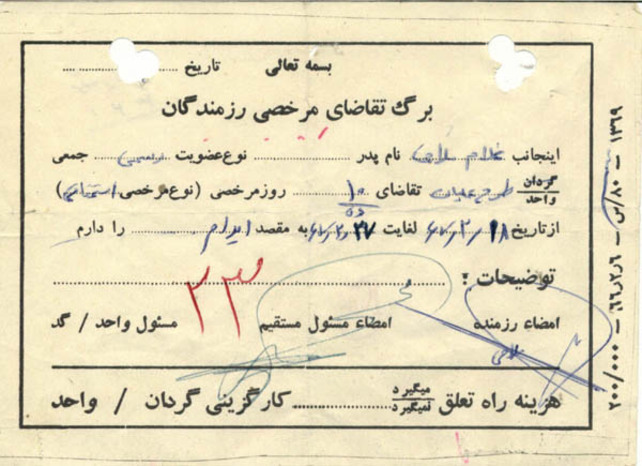 بسمه تعالی تاریخ ..........
برگ تقاضای مرخصی رزمندگان
اینجانب غلام نام پدر .......... نوع عضویت .......... جمعی
گردان
واحد
تقاضای ۱۰ روز مرخصی (نوع مرخصی
از تاریخ ۱۸ لغایت ۲۷ به مقصد .......... را دارم
توضیحات : ..........
۲۳
امضاء رزمنده امضاء مسئول مستقیم مسئول واحد / گد
هزینه راه تعلق میگیرد
نمیگیرد
.......... کارگزینی گردان / واحد
۲۰۰/۰۰۰ — ۶۶/۲/۶ — س/۸۰ — ۱۳۶۹